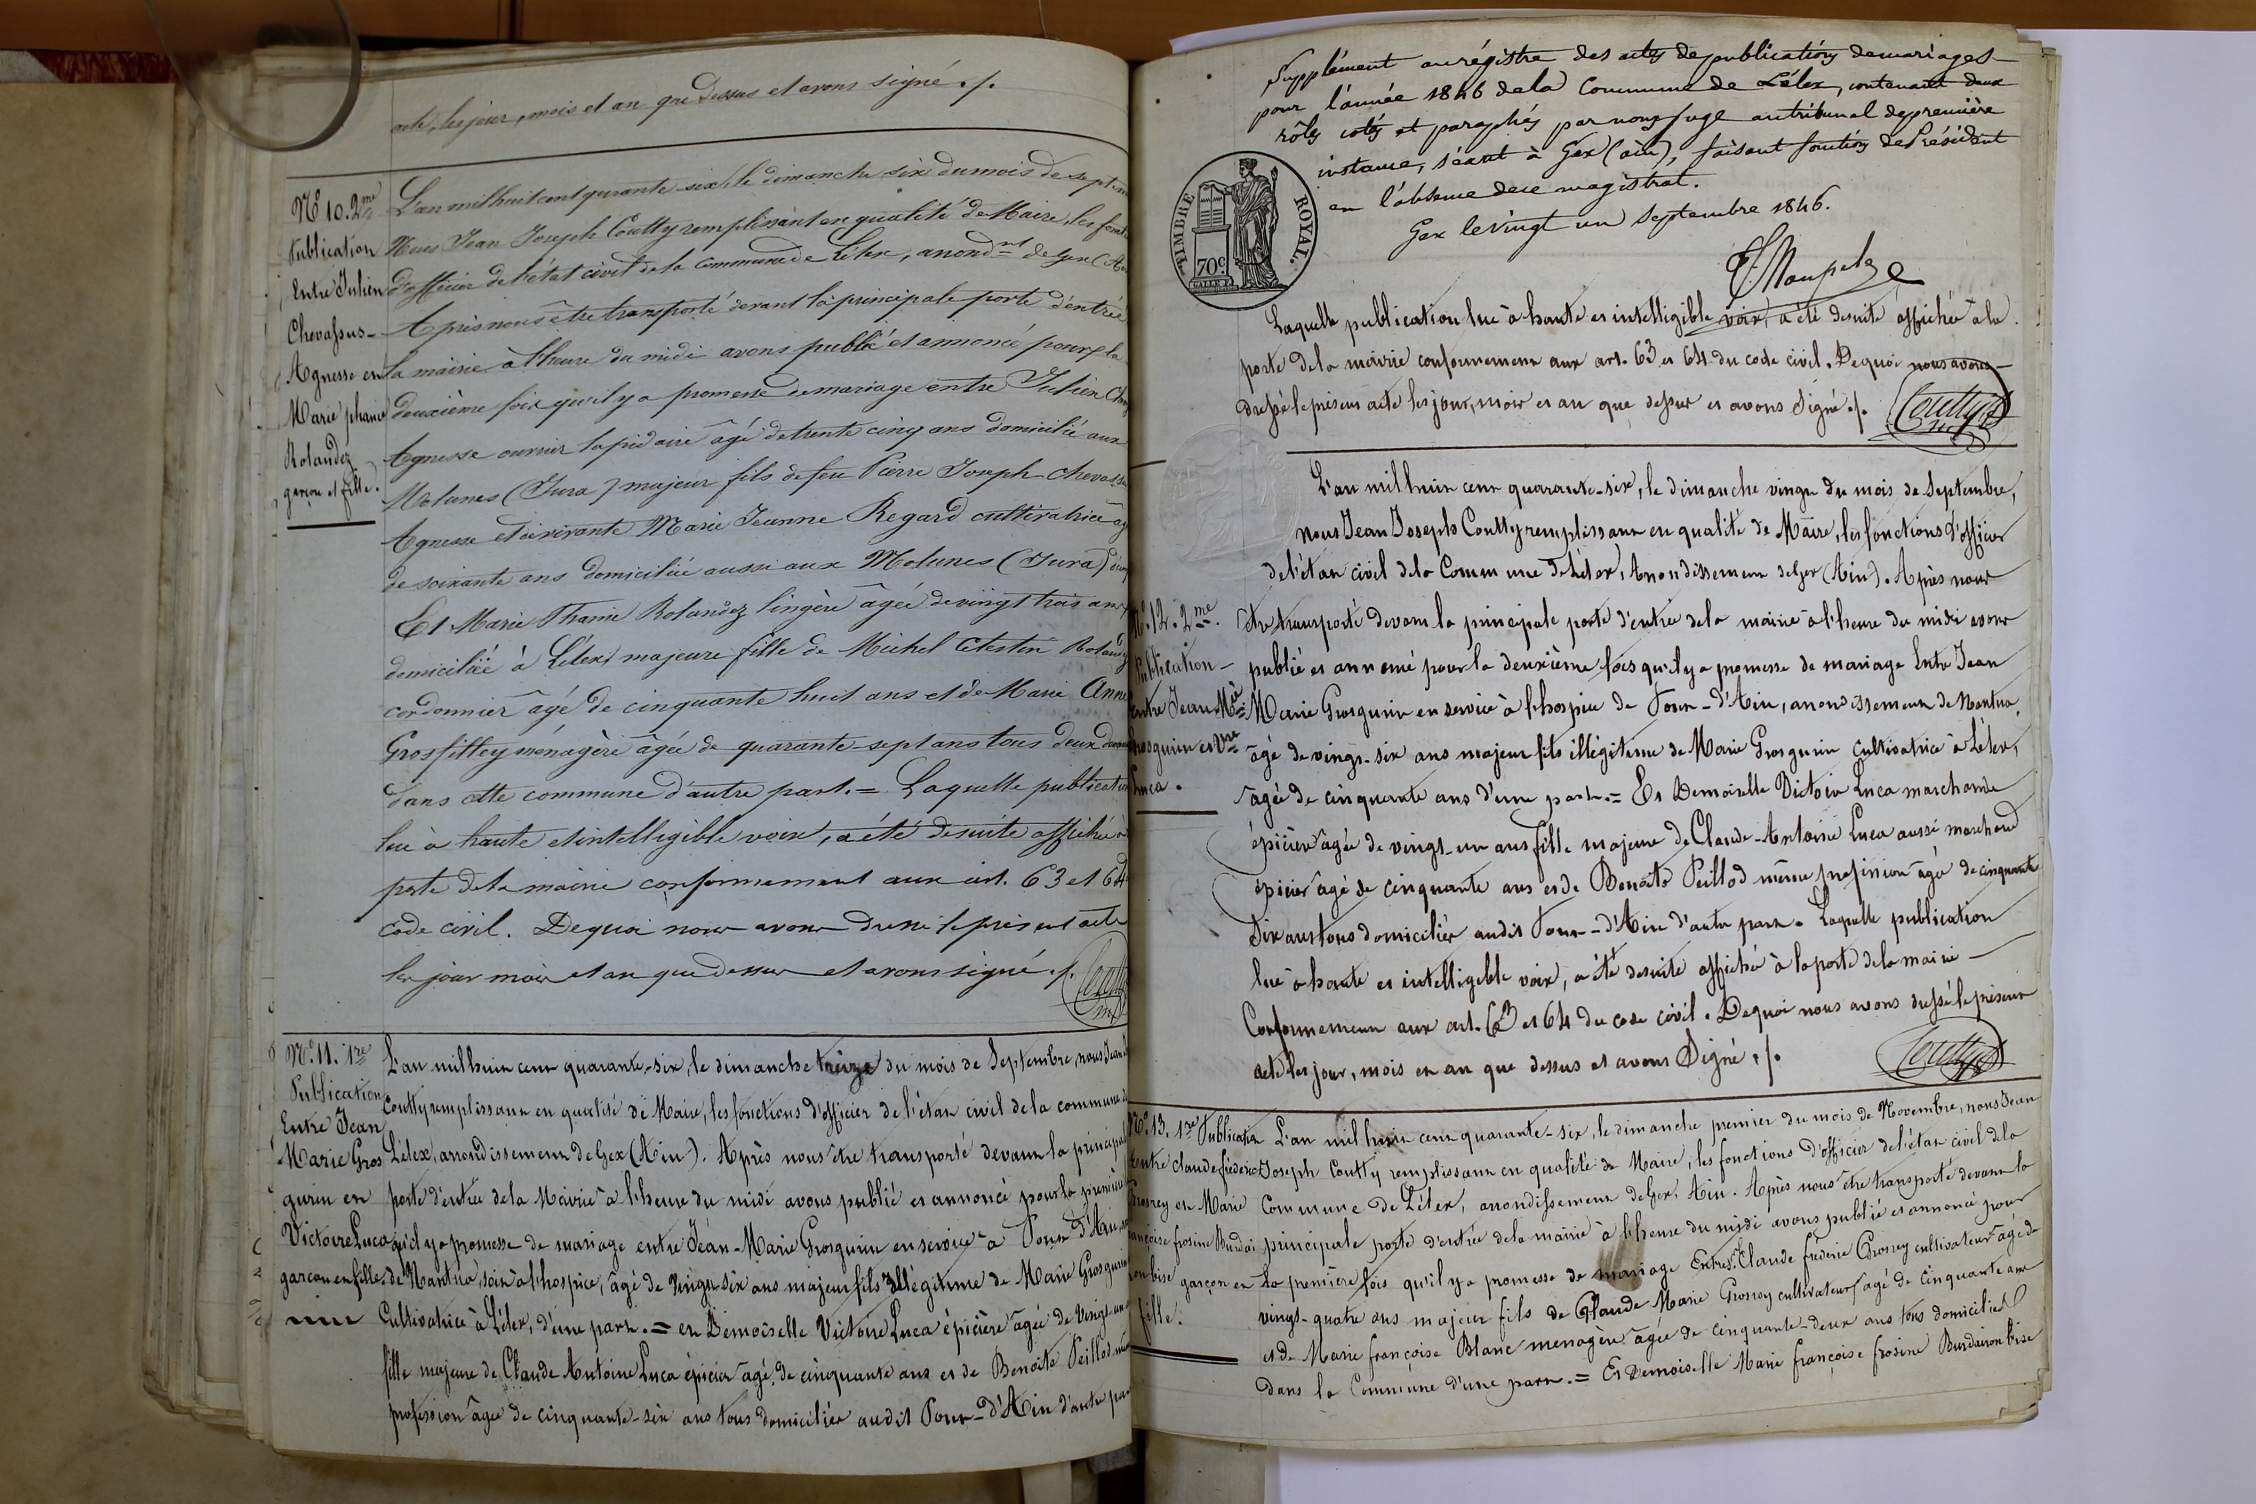 acte, les jour, mois et an que dessus et avons signé ./.
N° 10. 2me
Publication
Entre Julien
Chevassus-
Agnesse en
Marie phanie
Rolandez
garçon et fille.
L'an mil huit cent quarante-six, le dimanche six du mois de septem
Nous Jean Joseph Coutty remplissant en qualité de Maire, les foncti
d'officier de l'état civil de la commune de Lélex, arrond.nt de Gex (Ain
Après nous être transporté devant la principale porte d'entrée
la mairie à l'heure du midi avons publié et annoncé pour la
deuxième fois qu'il y a promesse de mariage entre Julien Chev
Agnesse ouvrier lapidaire âgé de trente cinq ans domicilié aux
Molunes (Jura) majeur fils de feu Pierre Joseph Chevassu
Agnesse et vivante Marie Jeanne Regard cultivatrice âg
de soixante ans domiciliée aussi aux Molunes (Jura)
Et Marie Phanie Rolandez lingère âgée de vingt trois ans
domiciliée à Lélex, majeure fille de Michel Célestin Roland
cordonnier âgé de cinquante huit ans et de Marie Anne
Grosfilley ménagère âgée de quarante-sept ans tous deux dom
dans cette commune d'autre part. = Laquelle publication
lue à haute et intelligible voix, a été desuite affichée à
porte de la mairie conformement aux art. 63 et 64
code civil. De quoi nous avons dressé le présent acte
les jour mois et an que dessus et avons signé ./.
Coutty
N° 11. 1re
Publication
Entre Jean
Marie Gros
gurin en
Victoire Luca
garçon en fille
L'an mil huit cent quarante-six, le dimanche treize du mois de Septembre, nous Jean
Coutty remplissant en qualité de Maire, les fonctions d'officier de l'état civil de la commune de
Lélex, arrondissement de Gex (Ain). Après nous être transporté devant la principal
porte d'entrée de la Mairie à l'heure du midi avons publié et annoncé pour la première
qu'il y a promesse de mariage entre Jean-Marie Grosgurin en service à Pont d'Ain,
de Nantua, soit à l'hospice, âgé de vingt-six ans majeur fils illégitime de Marie Grosgurin
Cultivatrice à Lélex, d'une part. = et Demoiselle Victoire Luca épicière âgée de vingt-un
fille majeure de Claude Antoine Luca épicier âgé de cinquante ans et de Benoite Peillod
profession âgée de cinquante-six ans tous domiciliés audit Pont-d'Ain d'autre par
Supplément au régistre des actes de publications de mariages
pour l'année 1846 de la Commune de Lélex, contenant deux
rôles cotés et paraphés par nous juge au tribunal de première
instance, séant à Gex (ain), faisant fonctions de Président
en l'absence de ce magistrat.
Gex le vingt un Septembre 1846.
TIMBRE ROYAL.
70c
Laquelle publication lue à haute et intelligible voix, a été desuite affichée à la
porte de la mairie conformement aux art. 63 et 64 du code civil. De quoi nous avons
dressé le présent acte les jour, mois et an que dessus et avons Signé ./.
Coutty
L'an mil huit cent quarante-six, le dimanche vingt du mois de Septembre,
nous Jean Joseph Coutty remplissant en qualité de Maire, les fonctions d'officier
de l'état civil de la Commune de Lélex, Arrondissement de Gex (Ain). Après nous
N° 12. 2me.
Publication
entre Jean Mie
Grosgurin et Vre
Luca.
être transporté devant la principale porte d'entrée de la mairie à l'heure du midi avons
publié et annoncé pour la deuxième fois qu'il y a promesse de mariage Entre Jean
Marie Grosgurin en service à l'hospice de Pont-d'Ain, arrondissement de Nantua,
âgé de vingt-six ans majeur fils illégitime de Marie Grosgurin Cultivatrice à Lélex,
âgée de cinquante ans d'une part. = Et Demoiselle Victoire Luca marchande
épicière âgée de vingt-un ans fille majeure de Claude-Antoine Luca aussi marchand
épicier âgé de cinquante ans et de Benoite Peillod même profession âgée de cinquante
Six ans tous domiciliés audit Pont-d'Ain d'autre part. Laquelle publication
lue à haute et intelligible voix, a été desuite affichée à la porte de la mairie
Conformement aux art. 63 et 64 du code civil. De quoi nous avons dressé le présent
acte les jour, mois et an que dessus et avons Signé ./.
Coutty
N° 13. 1re Publication
entre Claude fréderic
Grosrey et Marie
ançoise frosine Burdai
ron bise garçon et
fille.
L'an mil huit cent quarante-six, le dimanche premier du mois de Novembre, nous Jean
Joseph Coutty remplissant en qualité de Maire, les fonctions d'officier de l'état civil de la
Commune de Lélex, arrondissement de Gex, Ain. Après nous être transporté devant la
principale porte d'entrée de la mairie à l'heure du midi avons publié et annoncé pour
la première fois qu'il y a promesse de mariage Entre Claude fréderic Grosrey cultivateur âgé de
vingt-quatre ans majeur fils de Claude Marie Grosrey cultivateur âgé de cinquante ans
et de Marie françoise Blanc menagère âgée de cinquante-deux ans tous domiciliés
dans la Commune d'une part. = Et Demoiselle Marie françoise frosine Burdairon bise